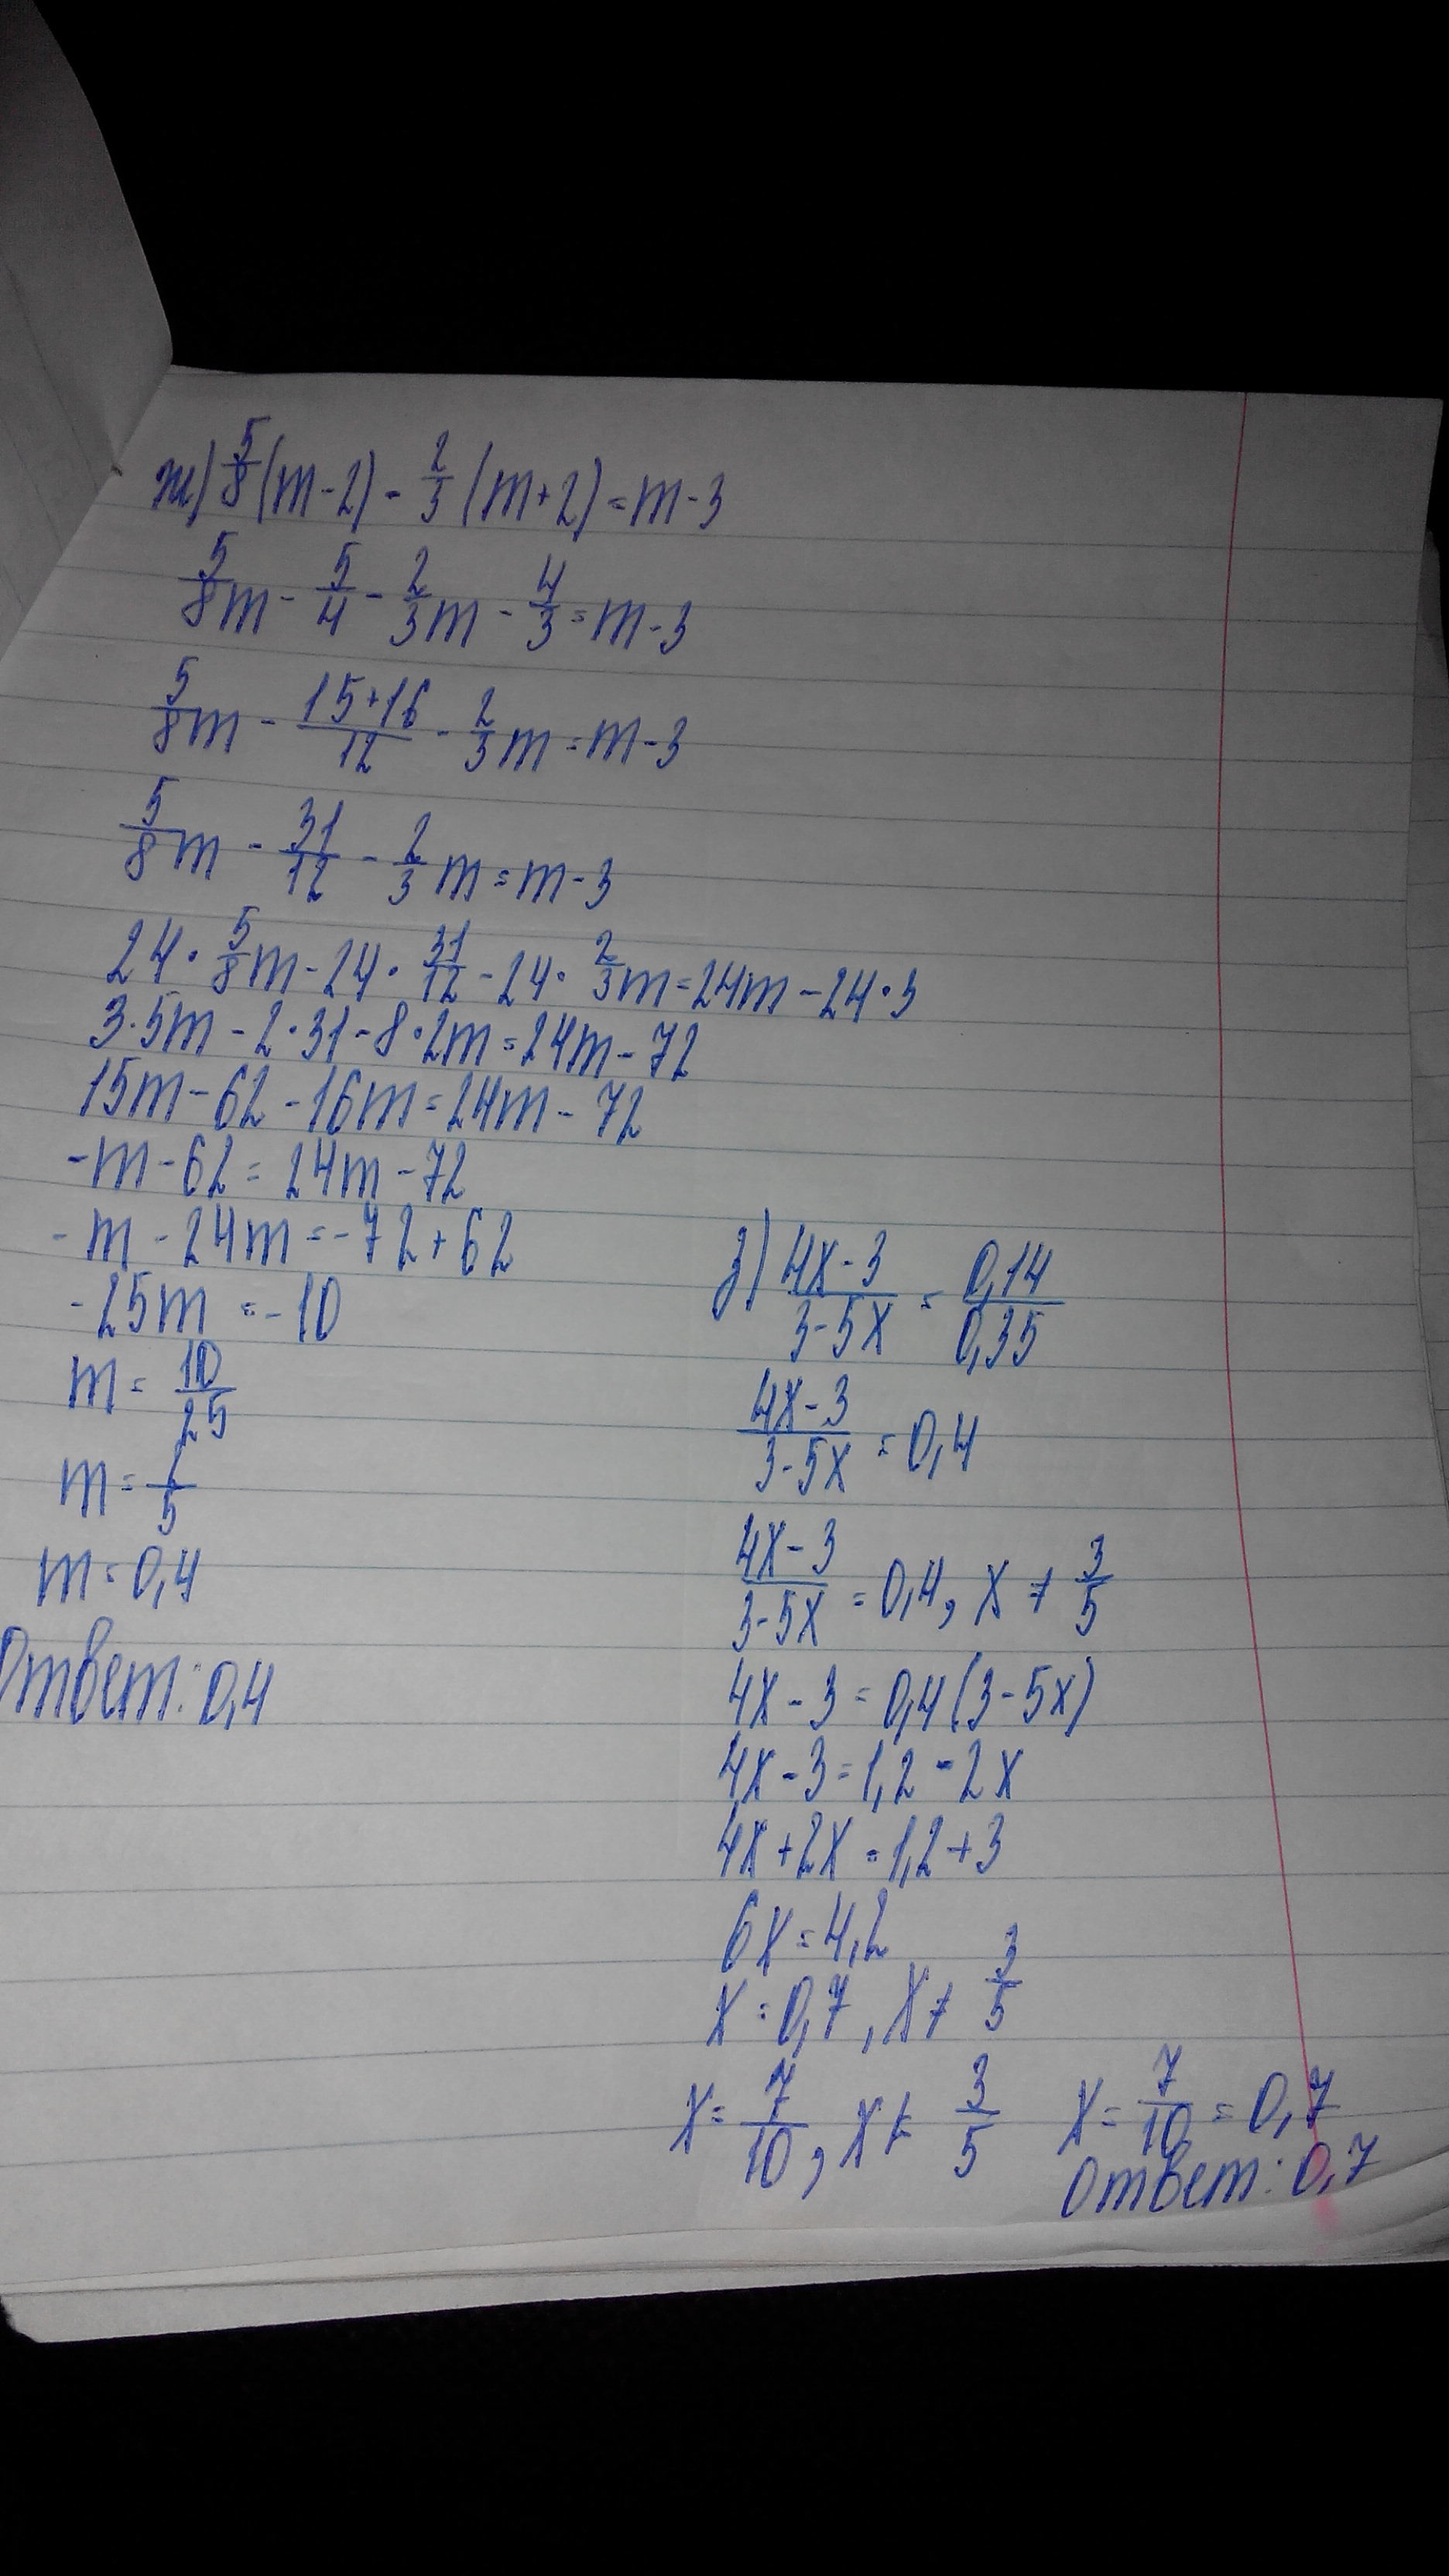 ж) 5/8(m-2) - 2/3(m+2)=m-3
5/8m - 5/4 - 2/3m - 4/3=m-3
5/8m - 15+16/12 - 2/3m=m-3
5/8m - 31/12 - 2/3m=m-3
24·5/8m-24·31/12-24·2/3m=24m-24·3
3·5m-2·31-8·2m=24m-72
15m-62-16m=24m-72
-m-62=24m-72
-m-24m=-72+62
-25m=-10
m=10/25
m=2/5
m=0,4
Ответ: 0,4
з) 4x-3/3-5x = 0,14/0,35
4x-3/3-5x = 0,4
4x-3/3-5x = 0,4, x ≠ 3/5
4x-3=0,4(3-5x)
4x-3=1,2-2x
4x+2x=1,2+3
6x=4,2
x=0,7, x≠ 3/5
x=7/10, x≠ 3/5 x=7/10=0,7
Ответ: 0,7